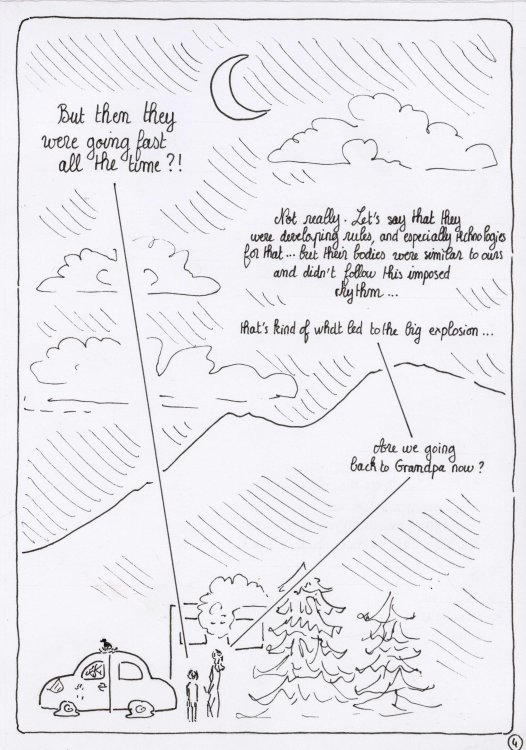 But then they
were going fast
all the time ?!
Not really. Let's say that they
were developing rules, and especially technologies
for that... but their bodies were similar to ours
and didn't follow this imposed
rhythm ...
that's kind of what led to the big explosion ...
Are we going
back to Grandpa now ?
4